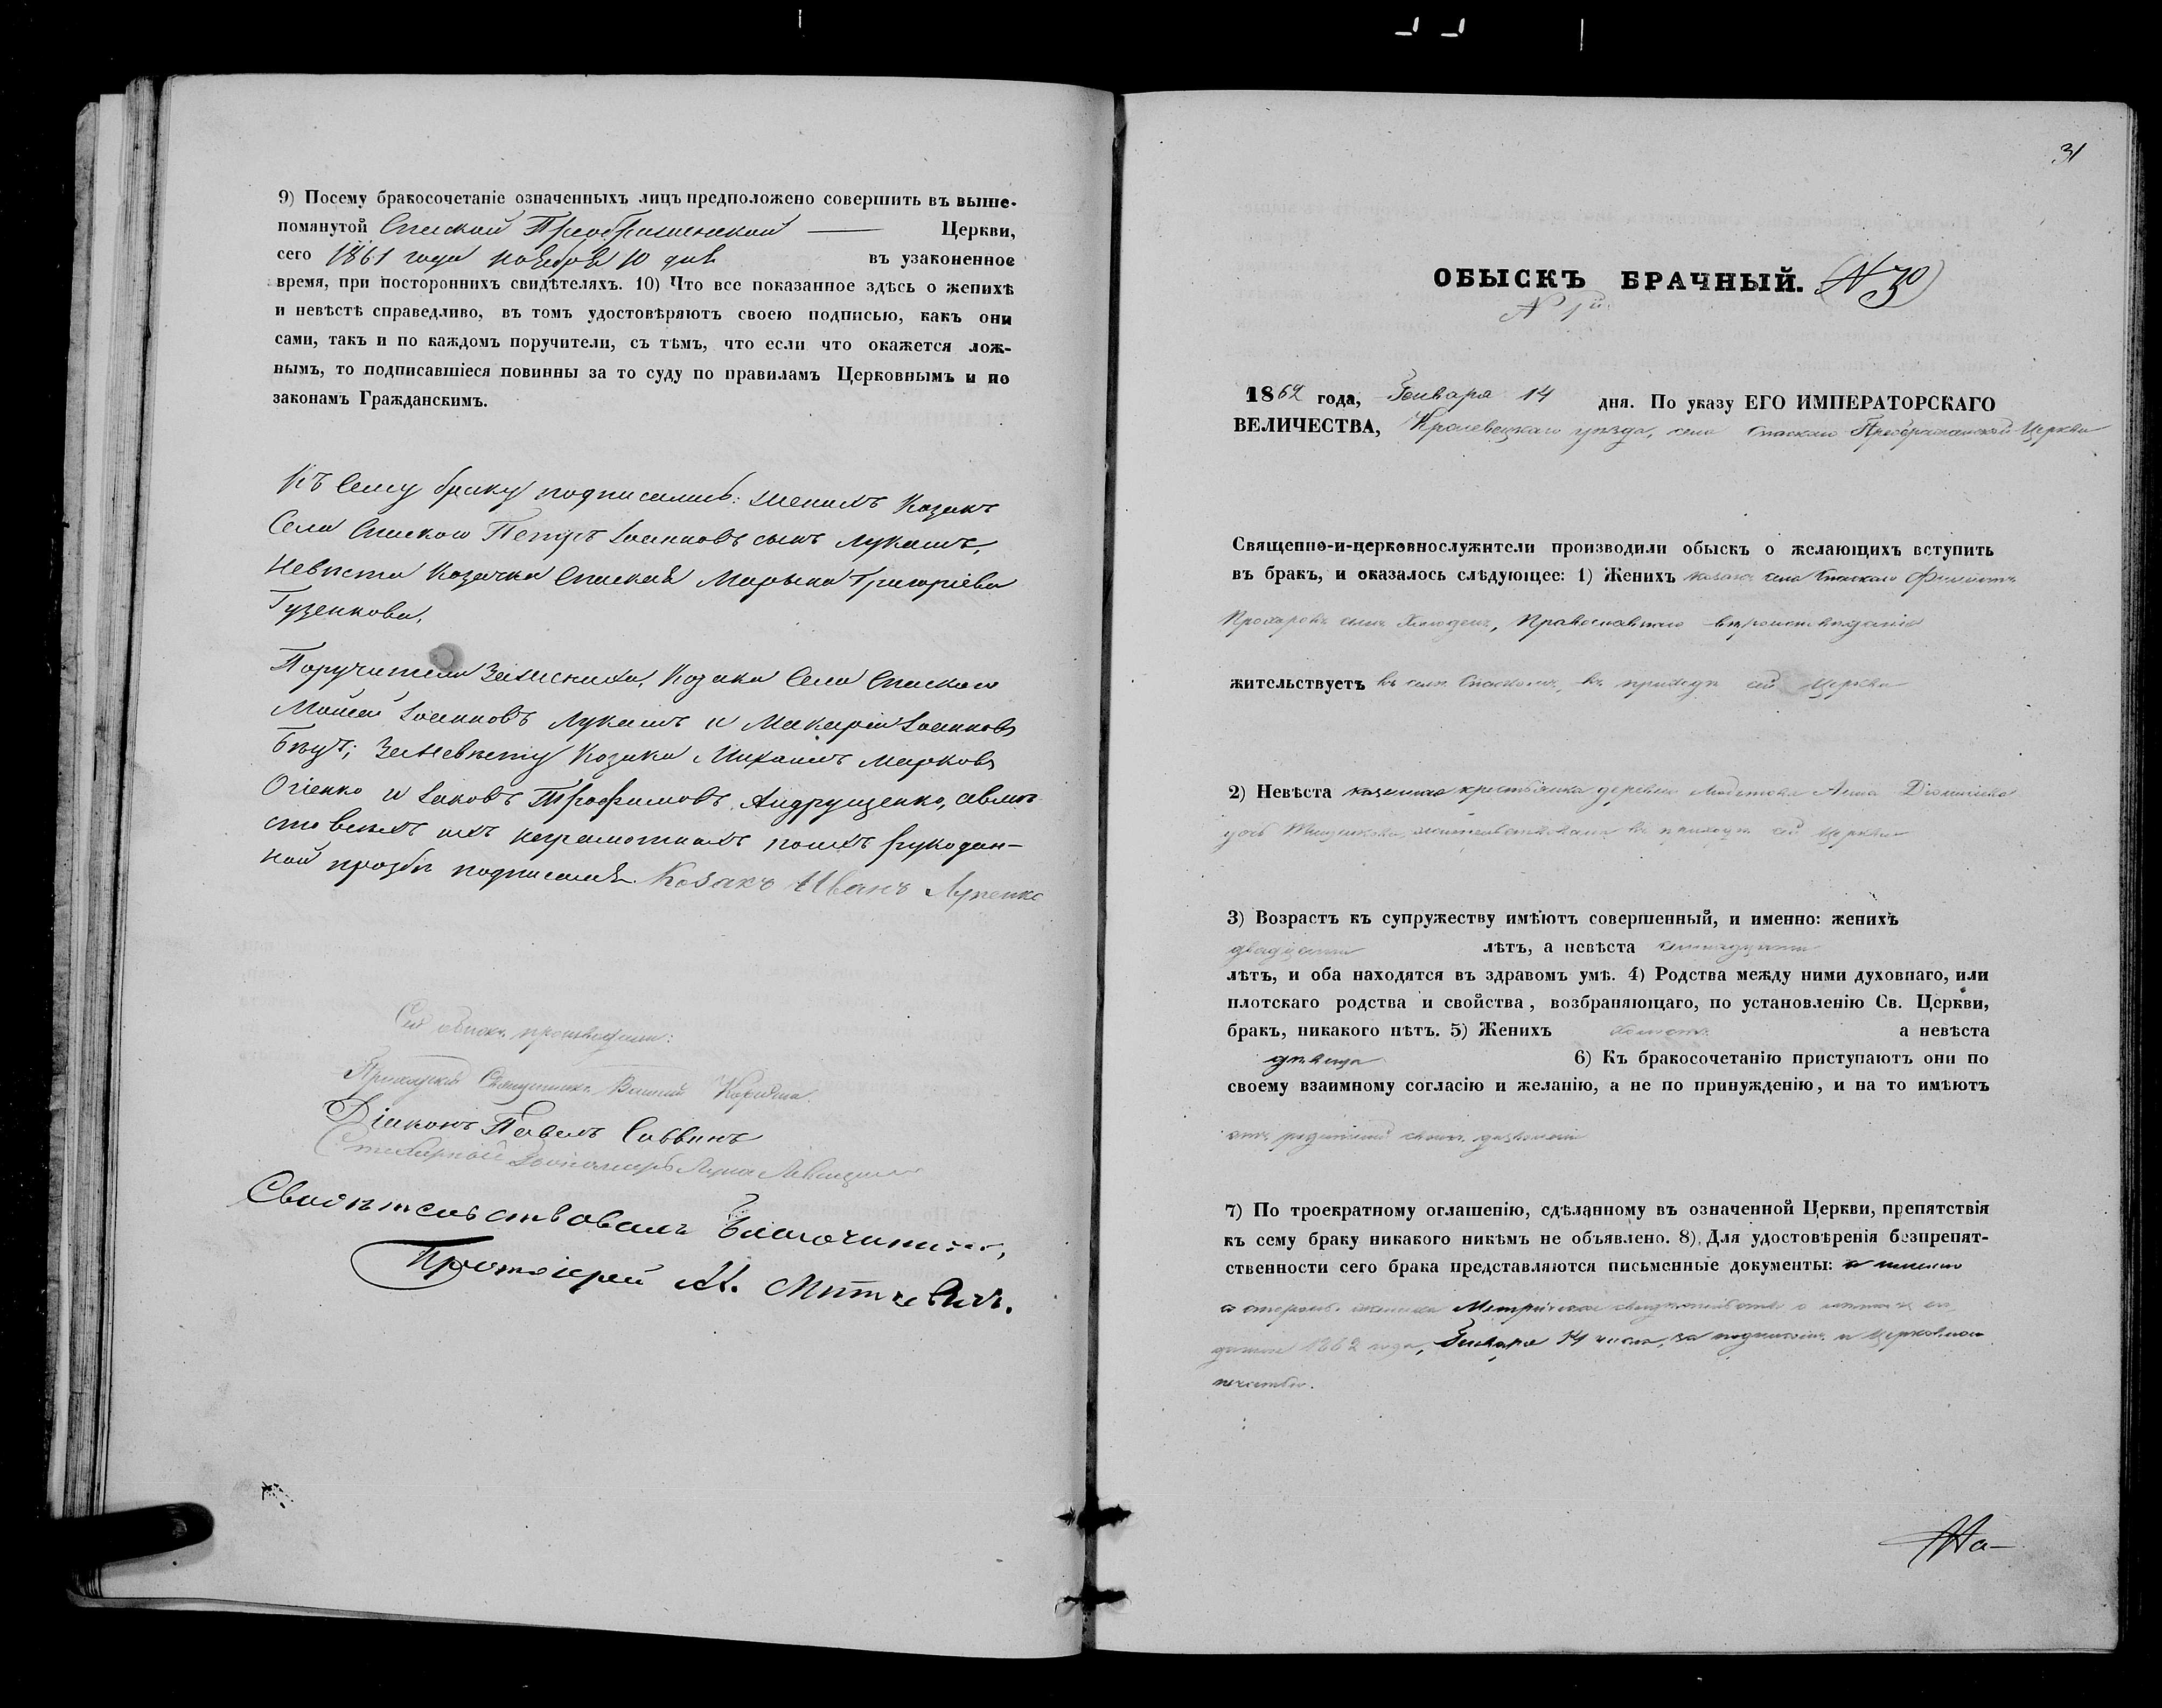 9) Посему бракосочетаніе означенныхъ лицъ предположено совершить въ выше-
помянутой Спаской Преображенской Церкви,
сего 1861 года ноября 10 дня въ узаконенное
время, при постороннихъ свидѣтеляхъ. 10) Что все показанное здѣсь о женихѣ
и невѣстѣ справедливо, въ томъ удостовѣряютъ своею подписью, какъ они
сами, такъ и по каждомъ поручители, съ тѣмъ, что если что окажется лож-
нымъ, то подписавшіеся повинны за то суду по правиламъ Церковнымъ и по
законамъ Гражданскимъ.
Къ Сему браку подписались: женихъ Козакъ
Села Спаского Петръ Іоанновъ сынъ Лукашъ,
Невѣста Козачка Спаская Марька Григоріева
Гузенкова,
Поручители Зажениха, Козаки Села Спаского
Мойсей Іоанновъ Лукашъ и Макарій Іоанновъ
заНевѣсту Козаки Михаилъ Марковъ
Огіенко и Іаковъ Трофимовъ Андрущенко, авмѣ
сто всехъ ихъ неграмотныхъ поихъ рукодан-
ной прозбѣ подписался Козакъ Иванъ Луценко
Сей обыскъ производили:
Приходскій Священникъ Василій
Діаконъ Павелъ Саввинъ
Стихарный Пономарь Лука
Свидѣтельствовалъ Благочинный,
Протоіерей А. Миткевичъ.
31
ОБЫСКЪ БРАЧНЫЙ. (N 30)
N 1й
1862 года, Января 14 дня. По указу ЕГО ИМПЕРАТОРСКАГО
ВЕЛИЧЕСТВА, Кролевецкаго уѣзда, села Спаскаго Преображенской Церкви
Священно-и-церковнослужители производили обыскъ о желающихъ вступить
въ бракъ, и оказалось слѣдующее: 1) Женихъ козакъ села Спаскаго
Прохоровъ сынъ Православнаго вѣроисповѣданія
жительствуетъ въ селѣ Спаскомъ, въ приходѣ сей Церкви
2) Невѣста казенная крестьянка деревни Анна Діонисіева
дочь жительствовала въ приходѣ сей Церкви
3) Возрастъ къ супружеству имѣютъ совершенный, и именно: женихъ
двадцати лѣтъ, а невѣста семнадцати
лѣтъ, и оба находятся въ здравомъ умѣ. 4) Родства между ними духовнаго, или
плотскаго родства и свойства, возбраняющаго, по установленію Св. Церкви,
бракъ, никакого нѣтъ. 5) Женихъ холостъ а невѣста
дѣвица 6) Къ бракосочетанію приступаютъ они по
своему взаимному согласію и желанію, а не по принужденію, и на то имѣютъ
отъ родителей своихъ дозволеніе
7) По троекратному оглашенію, сдѣланному въ означенной Церкви, препятствія
къ сему браку никакого никѣмъ не объявлено. 8) Для удостовѣренія безпрепят-
ственности сего брака представляются письменные документы: а именно
о жениха Метрическое свидѣтельство о
данное 1862 года, Января 14 числа, за подписомъ и Церковною
печатью.
На-